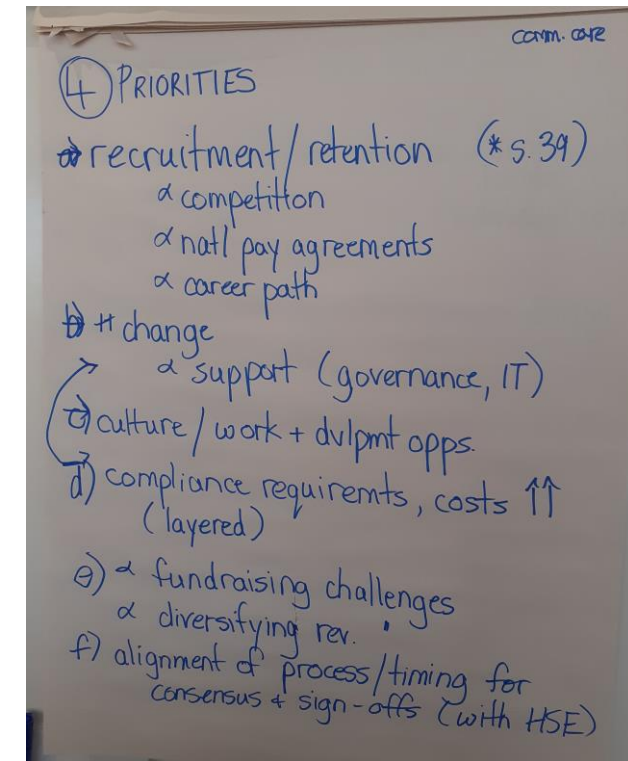 comm. care
④ PRIORITIES
a) recruitment/retention (* s.39)
α competition
α natl pay agreements
α career path
b) ++ change
α support (governance, IT)
c) culture / work + dvlpmt opps.
d) compliance requiremts, costs ↑↑
(layered)
e) α fundraising challenges
α diversifying rev.
f) alignment of process/timing for
consensus + sign-offs (with HSE)